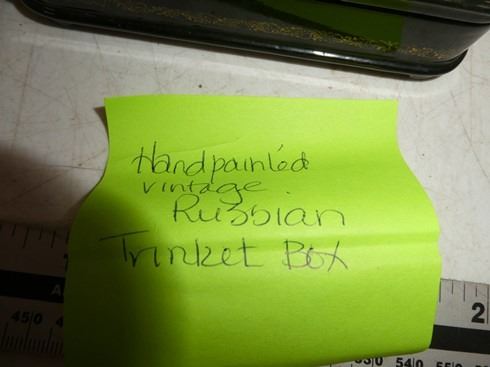 Handpainted
vintage
Russian
Trinket Box
A
2
45|0
46
530
54|0